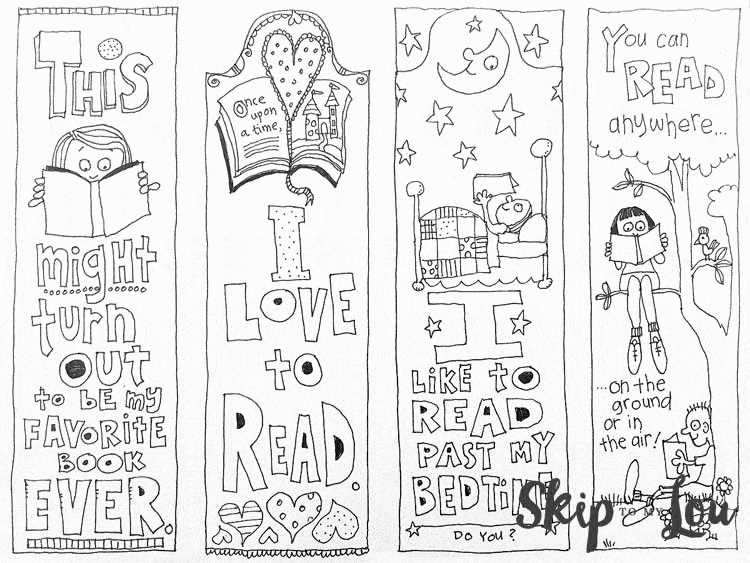 THIS
might
turn
OUT
to BE my
FAVORITE
BOOK
EVER.
Once
upon
a time,
I
LOVE
to
READ.
I
LIKE to
READ
PAST MY
BEDTIME
DO YOU?
You can
READ
anywhere...
...on the
ground
or in
the air!
Skip TO MY Lou